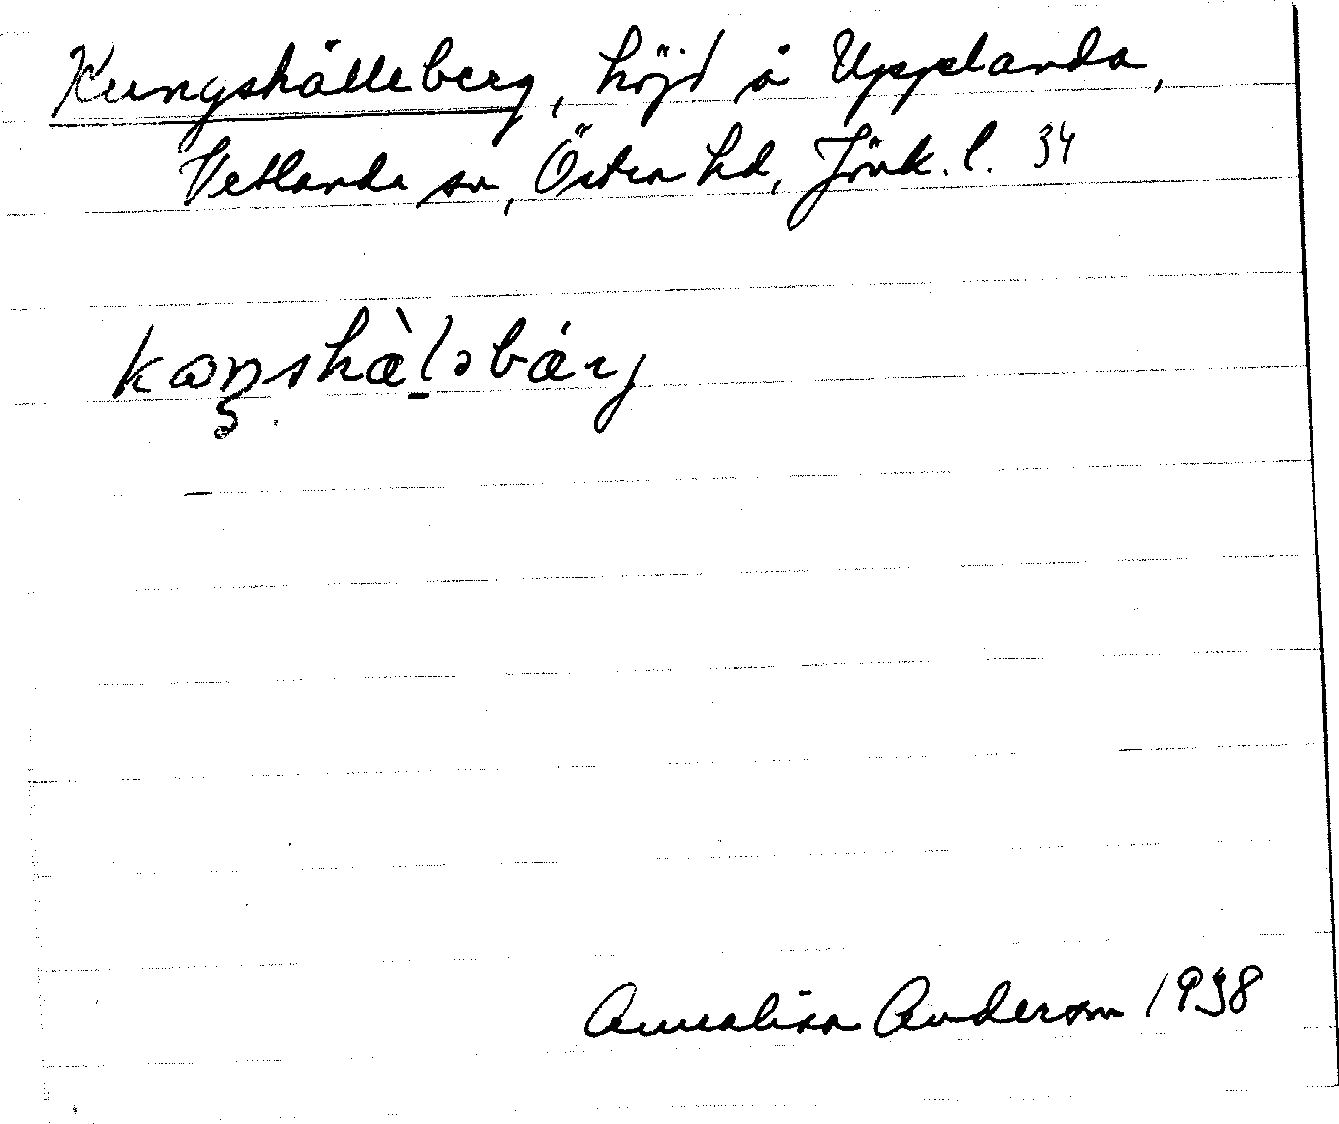 Kungshälleberg, höjd å Upplanda,
Vetlanda sn, Östra hd, Jönk. l. 34
Annalisa Anderson 1938